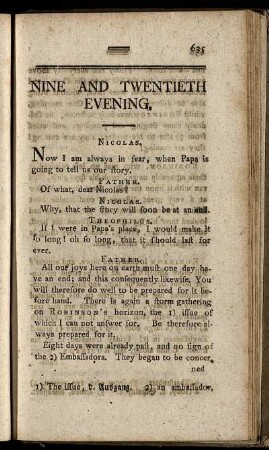 635
NINE AND TWENTIETH
EVENING,
NICOLAS.
Now I am always in fear, when Papa is
going to tell us our story.
FATHER.
Of what, dear Nicolas?
NICOLAS.
Why, that the story will soon be at an end.
THEOPHILUS.
If I were in Papa's place, I would make it
so long! oh so long, that it should last for
ever.
FATHER.
All our joys here on earth must one day
have an end; and this consequently likewise. You
will therefore do well to be prepared for it be-
fore hand. There is again a storm gathering
on ROBINSON's horizon, the 1) issue of
which I can not answer for. Be therefore al-
ways prepared for it.
Eight days were already past, and no sign of
the 2) Embassadors. They began to be concer-
ned
1) The issue, d. Ausgang. 2) an ambassador,